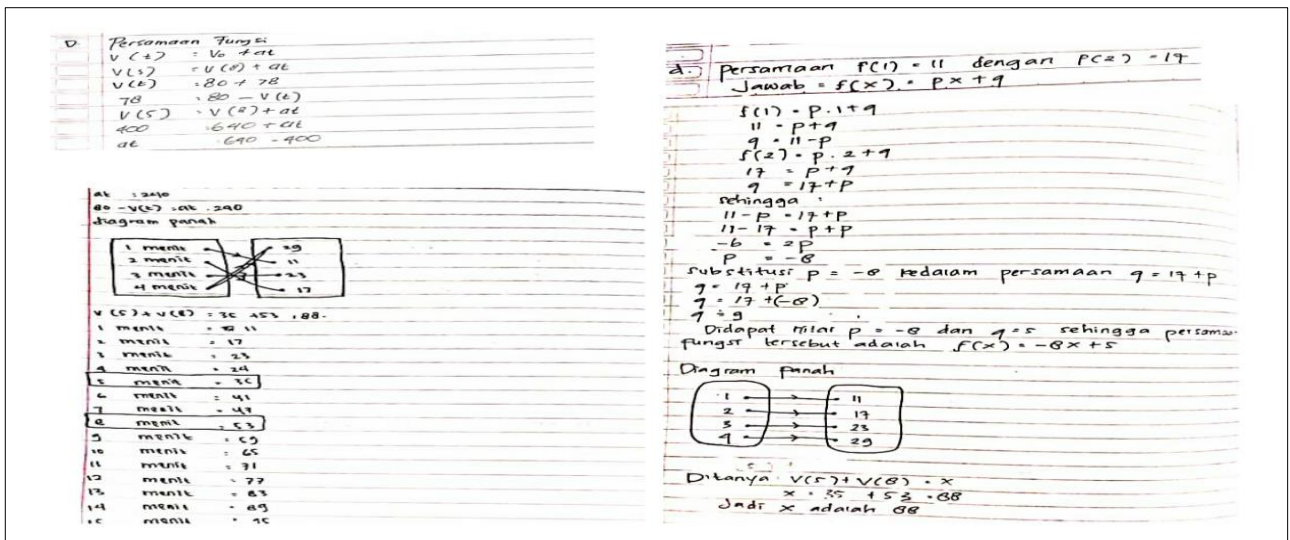 D. Persamaan Fungsi
V(t) = Vo + at
V(5) = V(8) + at
V(t) = 80 + 78
78 = 80 - V(t)
V(5) = V(8) + at
400 = 640 + at
at = 640 - 400
at = 240
80 - V(t) = at . 240
diagram panah
1 menit 29
2 menit 11
3 menit 23
4 menit 17
V(5) + V(8) = 35 + 53 = 88.
1 menit = 11
2 menit = 17
3 menit = 23
4 menit = 24
5 menit = 35
6 menit = 41
7 menit = 47
8 menit = 53
9 menit = 59
10 menit = 65
11 menit = 71
12 menit = 77
13 menit = 83
14 menit = 89
15 menit = 95
d.) Persamaan f(1) = 11 dengan P(2) = 17
Jawab = f(x) = px + q
f(1) = p.1 + q
11 = p + q
q = 11 - p
f(2) = p.2 + q
17 = p + q
q = 17 + p
sehingga :
11 - p = 17 + p
11 - 17 = p + p
-6 = 2p
p = -8
Substitusi p = -8 kedalam persamaan q = 17 + p
q = 17 + p
q = 17 + (-8)
q = 9
Didapat nilai p = -8 dan q = 5 sehingga persamaan
fungsi tersebut adalah f(x) = -8x + 5
Diagram panah
1 11
2 17
3 23
4 29
Ditanya V(5) + V(8) = x
x = 35 + 53 = 88
Jadi x adalah 88